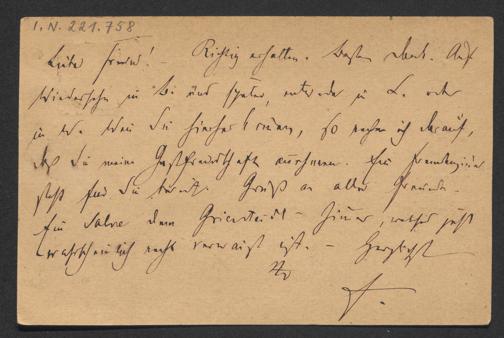 I. N. 221.758
Lieber Freund! – Richtig erhalten. Besten Dank. Auf
Wiedersehn in und später, entweder in L. oder
in W. Wenn Du hierher kommst, so rechne ich darauf,
daß Du meine Gastfreundschaft annimmst. Ein Fremdenzimmer
steht für Du bereit. Gruß an alle Freunde.
Ein Salve dem Griensteidl-Zimmer, welches jetzt
wahrscheinlich recht verwaist ist. – Herzlichst